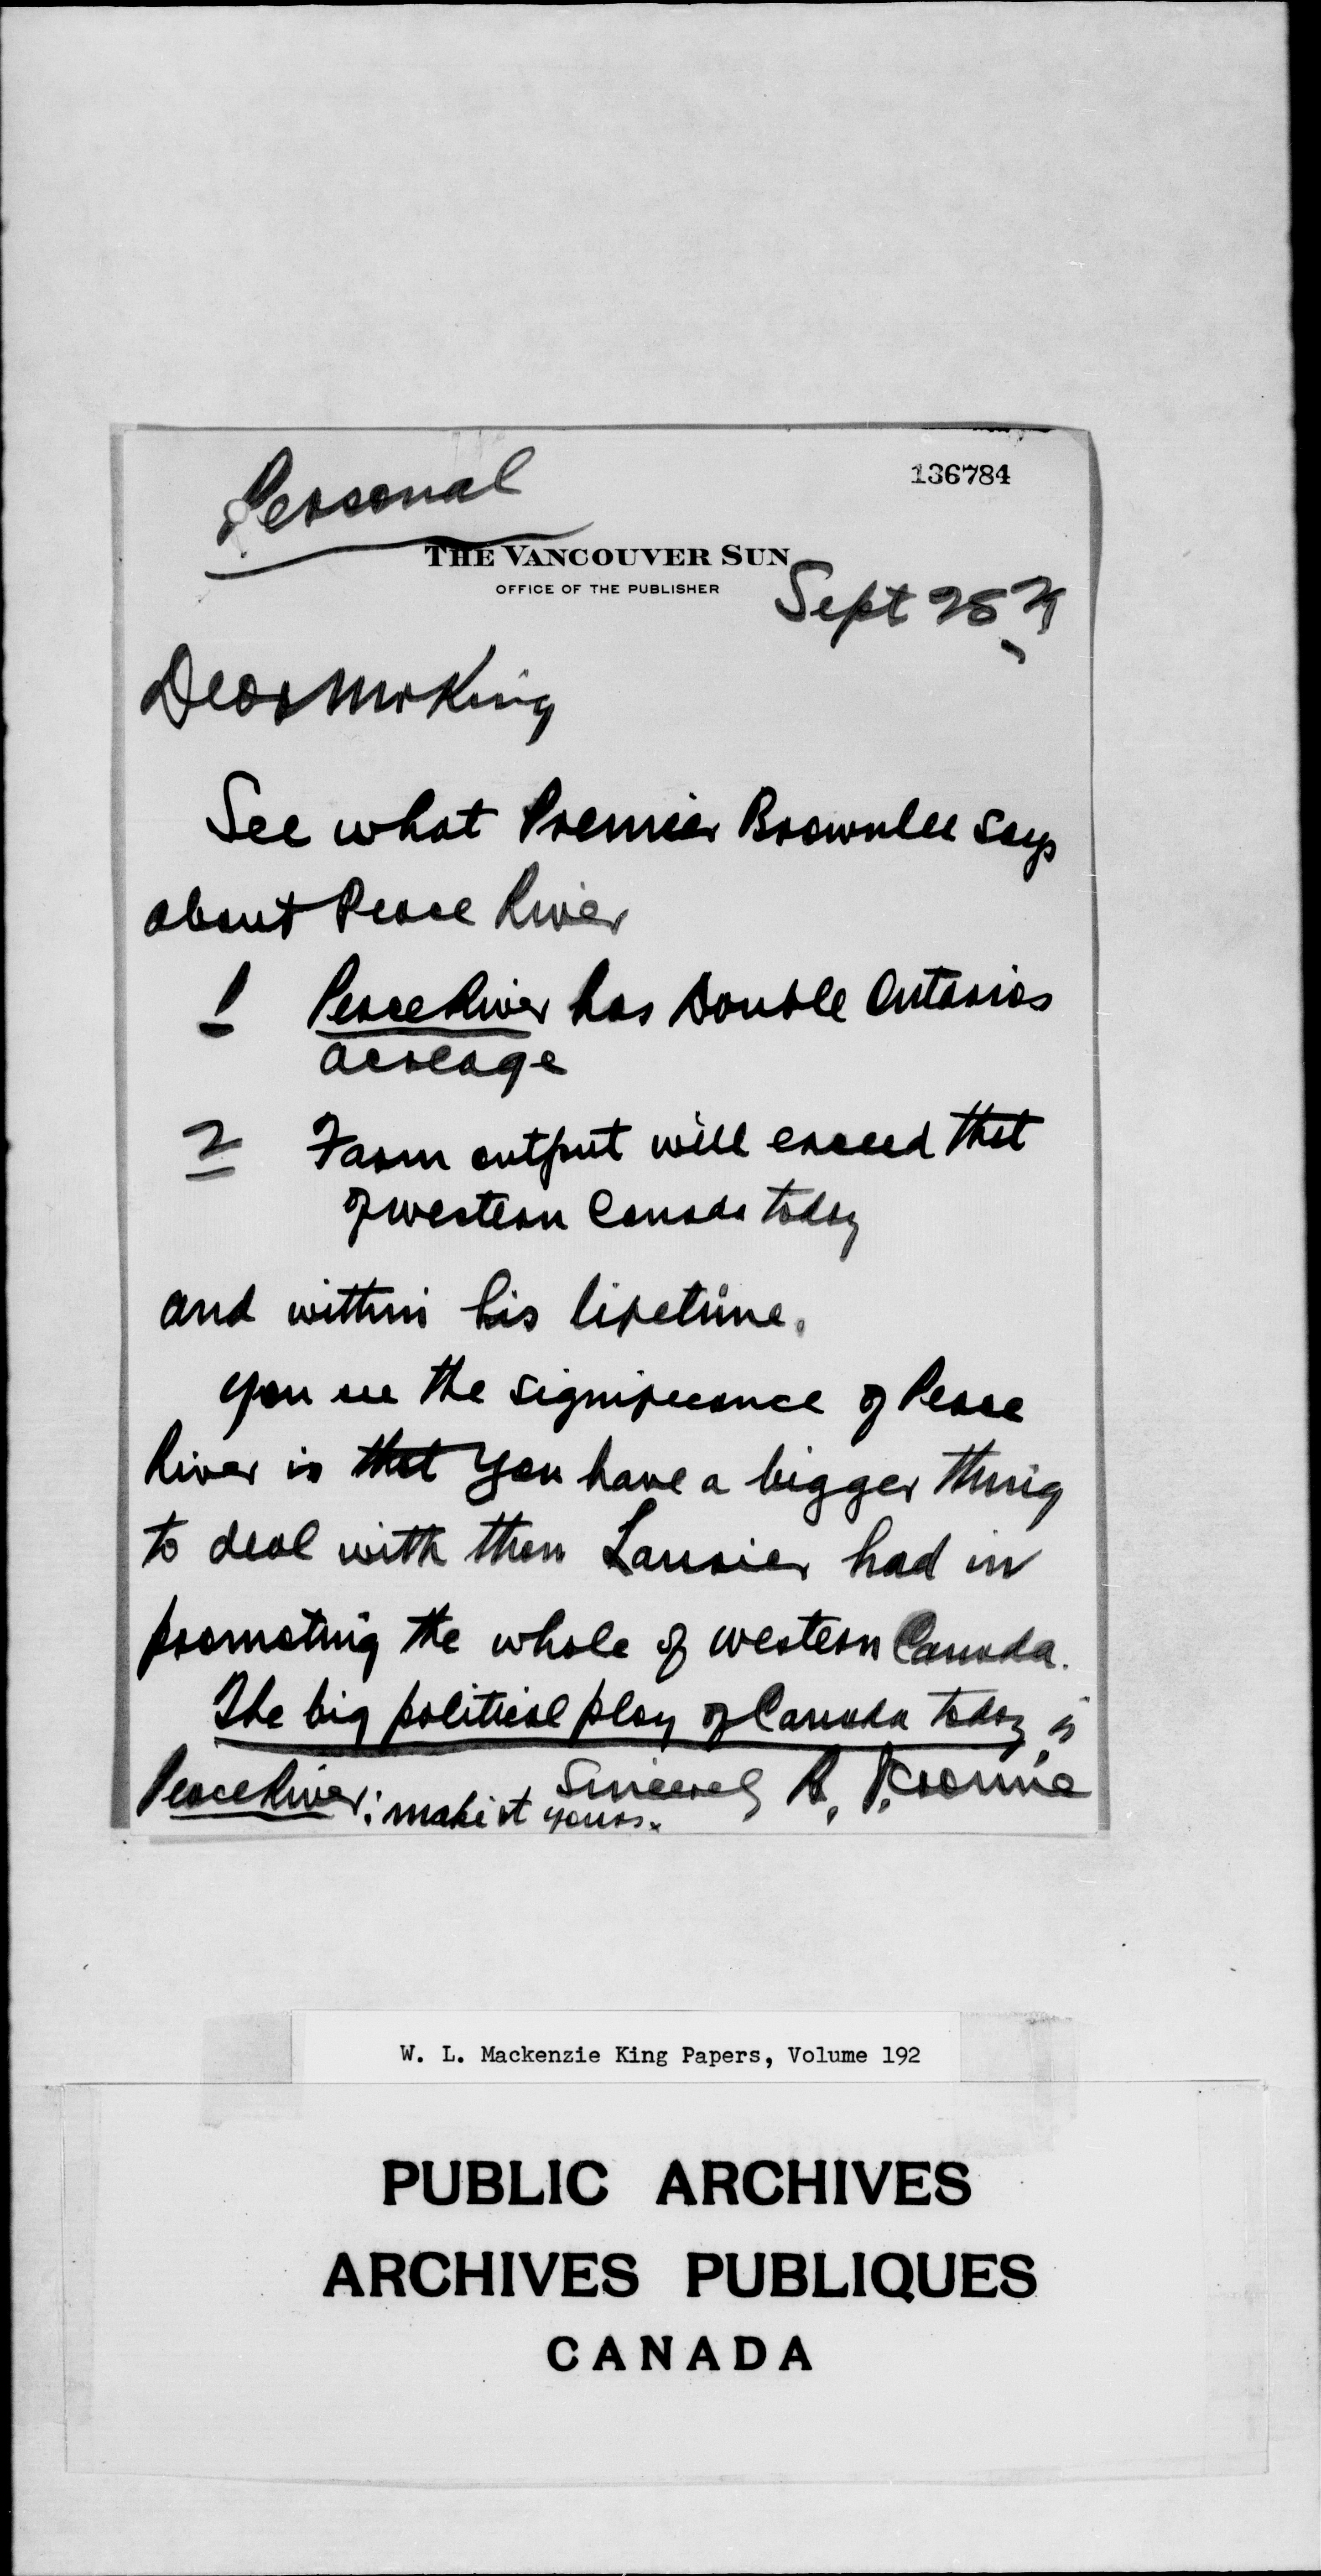 Personal
136784
THE VANCOUVER SUN
OFFICE OF THE PUBLISHER
Sept 28
Dear Mr King
See what Premier Brownlee says
about Peace River
1 Peace River has Double Ontarios
acreage
2 Farm output will exceed that
of western Canada today
and within his lifetime.
You see the significance of Peace
River is that you have a bigger thing
to deal with then Laurier had in
promoting the whole of western Canada.
The big political play of Canada today is
Peace River: make it yours.
Sincerely R. J. Cromie
W. L. Mackenzie King Papers, Volume 192
PUBLIC ARCHIVES
ARCHIVES PUBLIQUES
CANADA